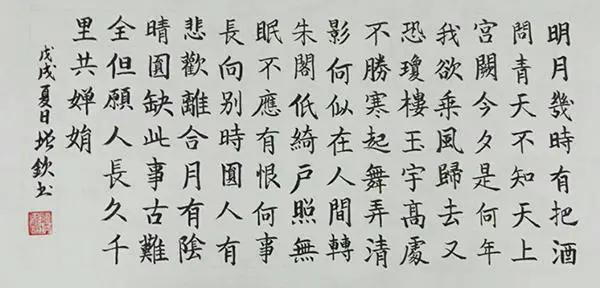 明月幾時有把酒
問青天不知天上
宮闕今夕是何年
我欲乘風歸去又
恐瓊樓玉宇高處
不勝寒起舞弄清
影何似在人間轉
朱閣低綺戶照無
眠不應有恨何事
長向别時圓人有
悲歡離合月有陰
晴圓缺此事古難
全但願人長久千
里共嬋娟
戊戌夏日增欽书